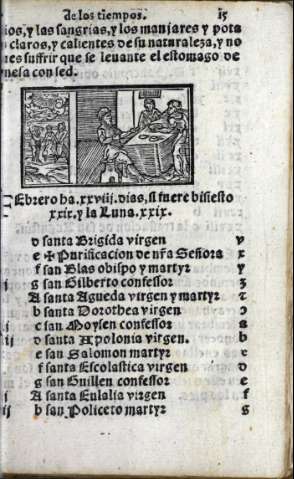 de los tiempos. 15
ios, y las sangrias, y los manjares y pota
claros, y calientes de su naturaleza, y no
res suffrir que se leuante el estomago de
mesa con sed.
Ebrero ha .xxviij. dias, si fuere bisiesto
xxix. y la Luna .xxix.
d santa Brigida virgen v
e ✠ Purificacion de nřa Señora x
f san Blas obispo y martyr y
j g san Gilberto confessor z
A santa Agueda virgen y martyr
b santa Dorothea virgen
j c san Moysen confessor a
ij d santa Apolonia virgen. b
e san Salomon martyr c
f santa Escolastica virgen d
g san Guillen confessor e
j A santa Eulalia virgen f
ij b san Policeto martyr g